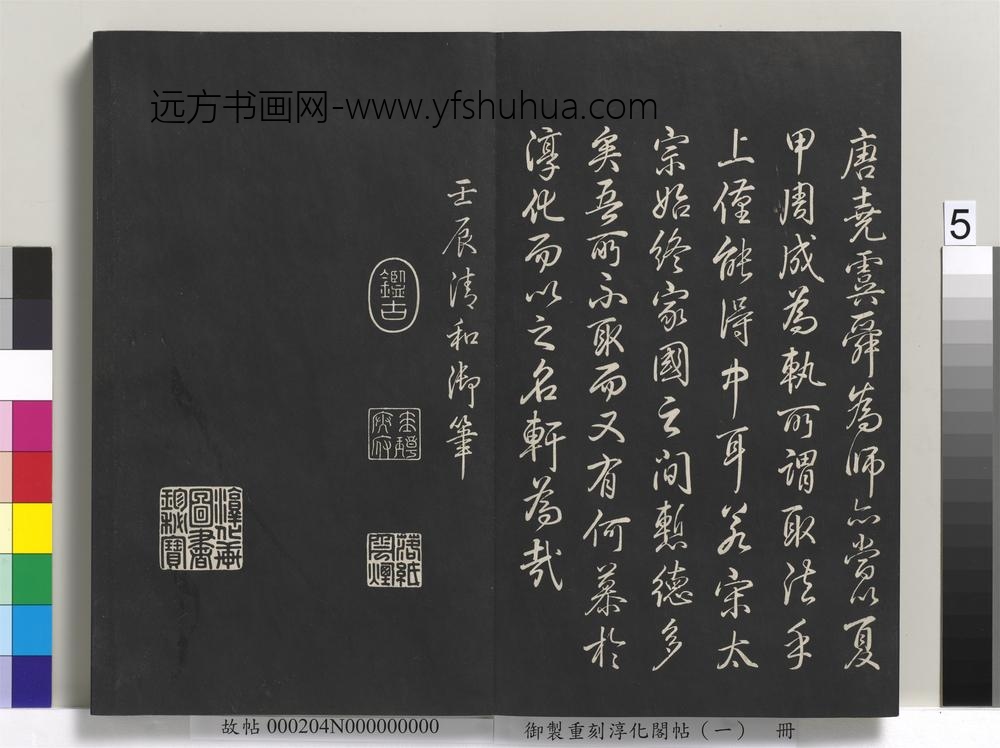 远方书画网-www.yfshuhua.com
唐堯虞舜為師亦當以夏
甲周成為執所謂取法乎
上僅能得中耳若宋太
宗始終家國之間慙德多
矣吾所不取而又有何慕於
淳化而以之名軒為哉
壬辰清和御筆
鑑古
落紙雲煙
淳化軒圖書珍秘寶
5
故帖 000204N000000000
御製重刻淳化閣帖（一） 冊